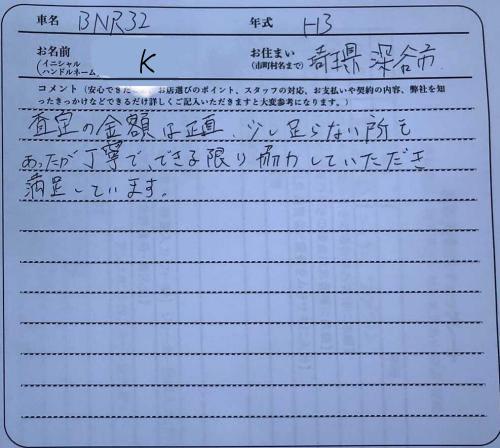 車名 BNR32 年式 H3
お名前 K お住まい 埼玉県 深谷市
(イニシャル ハンドルネーム (市町村名まで)
コメント(安心できた お店選びのポイント、スタッフの対応、お支払いや契約の内容、弊社を知
ったきっかけなどできるだけ詳しくご記入いただきますと大変参考になります。)
査定の金額は正直、少し足らない所も
あったが丁寧で、できる限り協力していただき
満足しています。